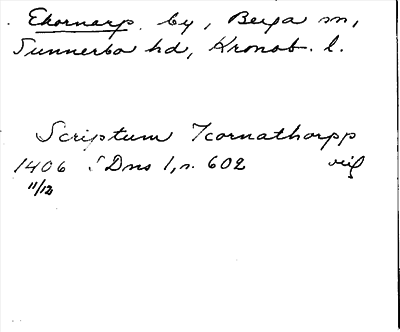 Ekornarp. by, Berga sn,
Sunnerbo hd, Kronob. l.
Scriptum Icornathorpp
1406 SDns 1, n. 602
11/12